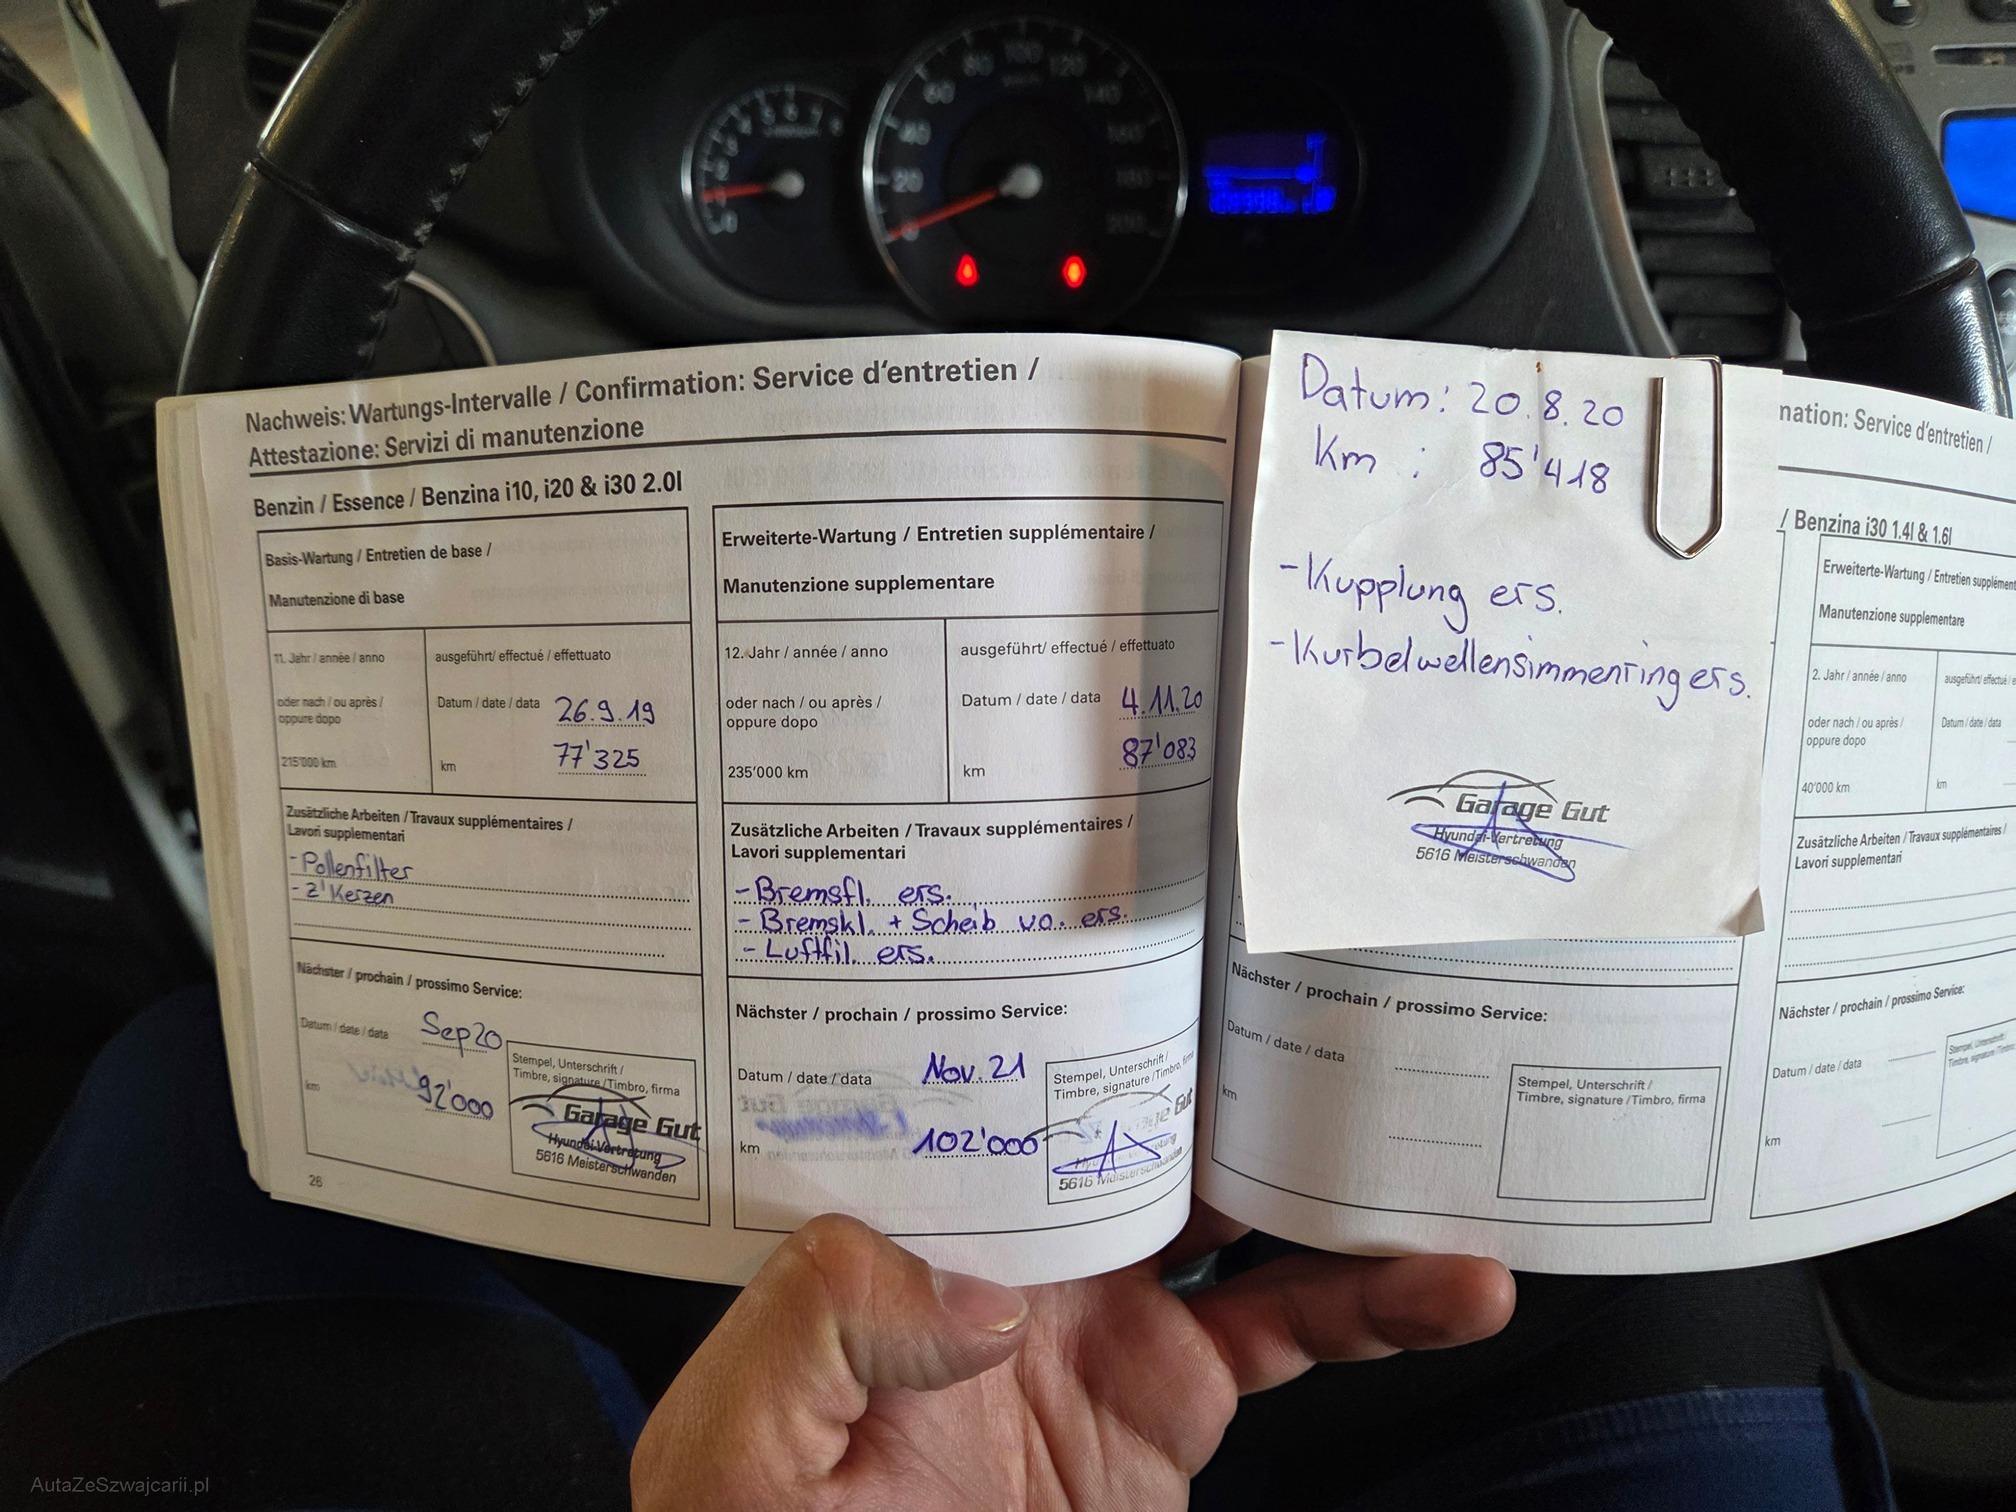 20
40
60
80
100
120
140
160
180
200
Nachweis: Wartungs-Intervalle / Confirmation: Service d'entretien /
Attestazione: Servizi di manutenzione
Benzin / Essence / Benzina i10, i20 & i30 2.0l
Basis-Wartung / Entretien de base /
Manutenzione di base
11. Jahr / année / anno
oder nach / ou après /
oppure dopo
215'000 km
ausgeführt/ effectué / effettuato
Datum / date / data 26.9.19
km 77'325
Zusätzliche Arbeiten / Travaux supplémentaires /
Lavori supplementari
- Pollenfilter
- z'Kerzen
Nächster / prochain / prossimo Service:
Datum / date / data Sep 20
km 92'000
Stempel, Unterschrift /
Timbre, signature /Timbro, firma
Garage Gut
Hyundai-Vertretung
5616 Meisterschwanden
26
Erweiterte-Wartung / Entretien supplémentaire /
Manutenzione supplementare
12. Jahr / année / anno
oder nach / ou après /
oppure dopo
235'000 km
ausgeführt/ effectué / effettuato
Datum / date / data 4.11.20
km 87'083
Zusätzliche Arbeiten / Travaux supplémentaires /
Lavori supplementari
- Bremsfl. ers.
- Bremskl. + Scheib vo. ers.
- Luftfil. ers.
Nächster / prochain / prossimo Service:
Datum / date / data Nov. 21
km 102'000
Stempel, Unterschrift /
Timbre, signature /Timbro, firma
Gut
5616 Meisterschwanden
Datum: 20.8.20
Km : 85'418
- Kupplung ers.
- Kurbelwellensimmenring ers.
Garage Gut
Hyundai-Vertretung
5616 Meisterschwanden
Nächster / prochain / prossimo Service:
Datum / date / data
km
Stempel, Unterschrift /
Timbre, signature /Timbro, firma
nation: Service d'entretien /
/ Benzina i30 1.4l & 1.6l
Erweiterte-Wartung / Entretien supplément
Manutenzione supplementare
2. Jahr / année / anno
oder nach / ou après /
oppure dopo
40'000 km
ausgeführt/ effectué / e
Datum / date / data
km
Zusätzliche Arbeiten / Travaux supplémentaires /
Lavori supplementari
Nächster / prochain / prossimo Service:
Datum / date / data
km
Stempel, Unterschrift /
Timbre, signature /Timbro
AutaZeSzwajcarii.pl